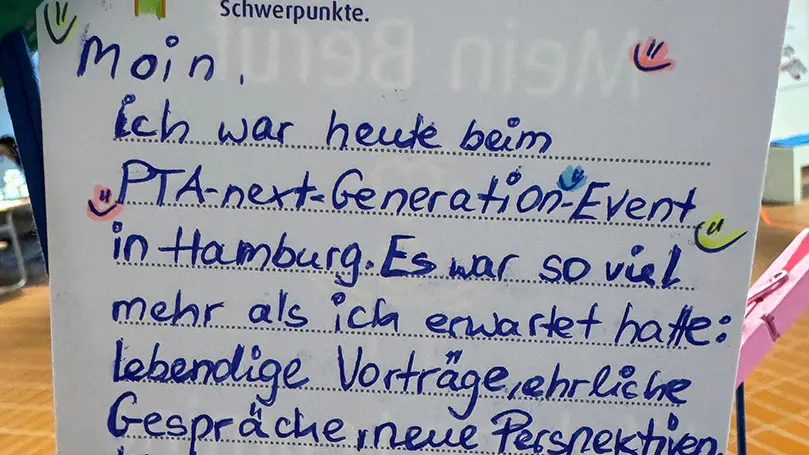 Schwerpunkte.
Moin,
ich war heute beim
PTA-next-Generation-Event
in Hamburg. Es war so viel
mehr als ich erwartet hatte:
lebendige Vorträge, ehrliche
Gespräche, neue Perspektiven,